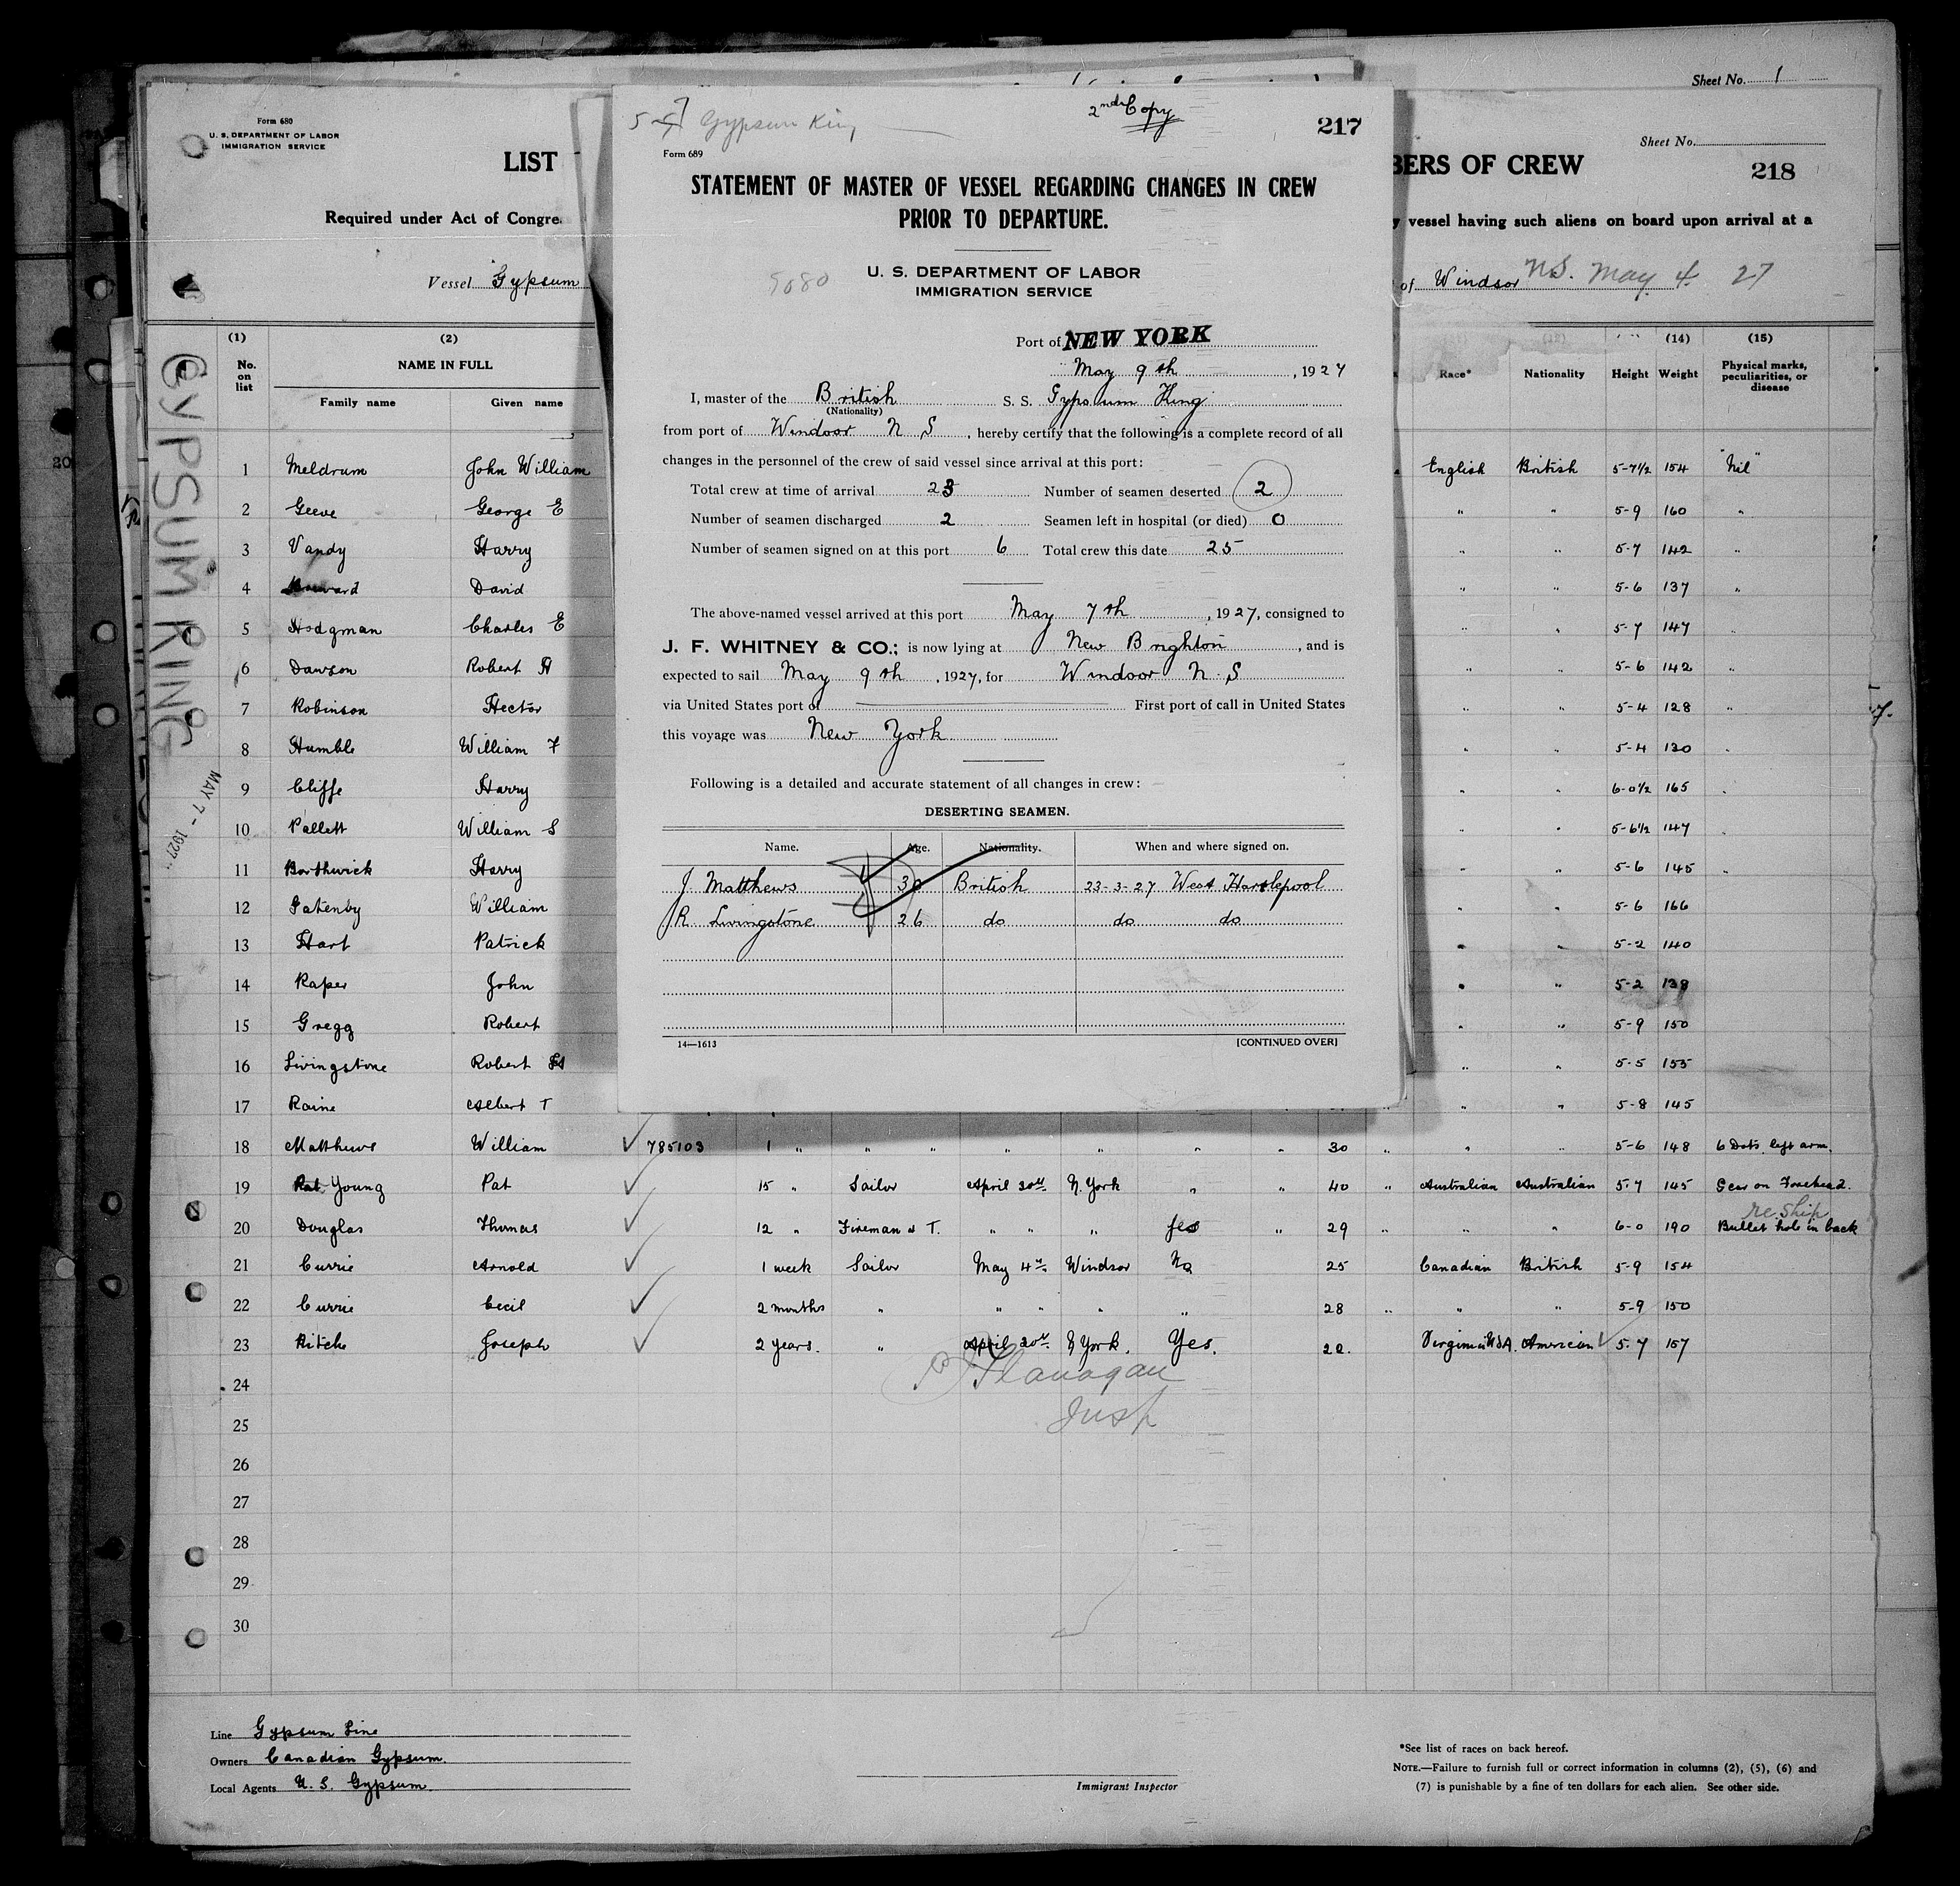 Sheet No. 1
Form 680
U. S. DEPARTMENT OF LABOR
IMMIGRATION SERVICE
LIST
Required under Act of Congre
Vessel Gypsum
BERS OF CREW
Sheet No.
218
y vessel having such aliens on board upon arrival at a
of Windsor N.S. May 4. 27
GYPSUM KING
MAY 7 - 1927
5-7 Gypsum King
2nd Copy
217
Form 689
STATEMENT OF MASTER OF VESSEL REGARDING CHANGES IN CREW
PRIOR TO DEPARTURE.
5080
U. S. DEPARTMENT OF LABOR
IMMIGRATION SERVICE
Port of NEW YORK
May 9th, 1927
I, master of the British S. S. Gypsum King
(Nationality)
from port of Windsor N S, hereby certify that the following is a complete record of all
changes in the personnel of the crew of said vessel since arrival at this port:
Total crew at time of arrival 23 Number of seamen deserted 2
Number of seamen discharged 2 Seamen left in hospital (or died) 0
Number of seamen signed on at this port 6 Total crew this date 25
The above-named vessel arrived at this port May 7th, 1927, consigned to
J. F. WHITNEY & CO.; is now lying at New Brighton, and is
expected to sail May 9th, 1927, for Windsor N. S
via United States port of First port of call in United States
this voyage was New York
Following is a detailed and accurate statement of all changes in crew:
DESERTING SEAMEN.
Name. Age. Nationality. When and where signed on.
J. Matthews 30 British 23-3-27 West Hartlepool
R. Livingstone 26 do do do
14—1613 [CONTINUED OVER]
(1) (2) (14) (15)
No. on list NAME IN FULL Race* Nationality Height Weight Physical marks, peculiarities, or disease
Family name Given name
1 Meldrum John William English British 5-7½ 154 "Nil"
2 Geeve George E " " 5-9 160 "
3 Vandy Harry " " 5-7 142 "
4 David " " 5-6 137 "
5 Hodgman Charles E " " 5-7 147 "
6 Dawson Robert H " " 5-6 142 "
7 Robinson Hector " " 5-4 128 "
8 Humble William F " " 5-4 130 "
9 Cliffe Harry " " 6-0½ 165 "
10 Pallett William S " " 5-6½ 147 "
11 Borthwick Harry " " 5-6 145 "
12 Gatenby William " " 5-6 166
13 Hart Patrick " " 5-2 140
14 Raper John " " 5-2 138
15 Gregg Robert " " 5-9 150
16 Livingstone Robert H " " 5-5 155
17 Raine Albert T " " 5-8 145
18 Matthews William 785103 1 " " " " " " " 30 " " " 5-6 148 6 Dots left arm.
19 Young Pat 15 " Sailor April 30th N. York " " 40 " Australian Australian 5.7 145 Scar on Forehead.
re ship
20 Douglas Thomas 12 " Fireman & T. " " " Yes " 29 " " " 6-0 190 Bullet hole in back
21 Currie Arnold 1 week Sailor May 4th Windsor No 25 Canadian British 5-9 154
22 Currie Cecil 2 months " " " " " 28 " " " 5-9 150
23 Ritchie Joseph 2 years. " April 30th N York. Yes. 22. Virginia USA. American 5.7 157
Flanagan
Insp
24
25
26
27
28
29
30
Line Gypsum Line
Owners Canadian Gypsum.
Local Agents U. S. Gypsum.
Immigrant Inspector
*See list of races on back hereof.
NOTE.—Failure to furnish full or correct information in columns (2), (5), (6) and
(7) is punishable by a fine of ten dollars for each alien. See other side.